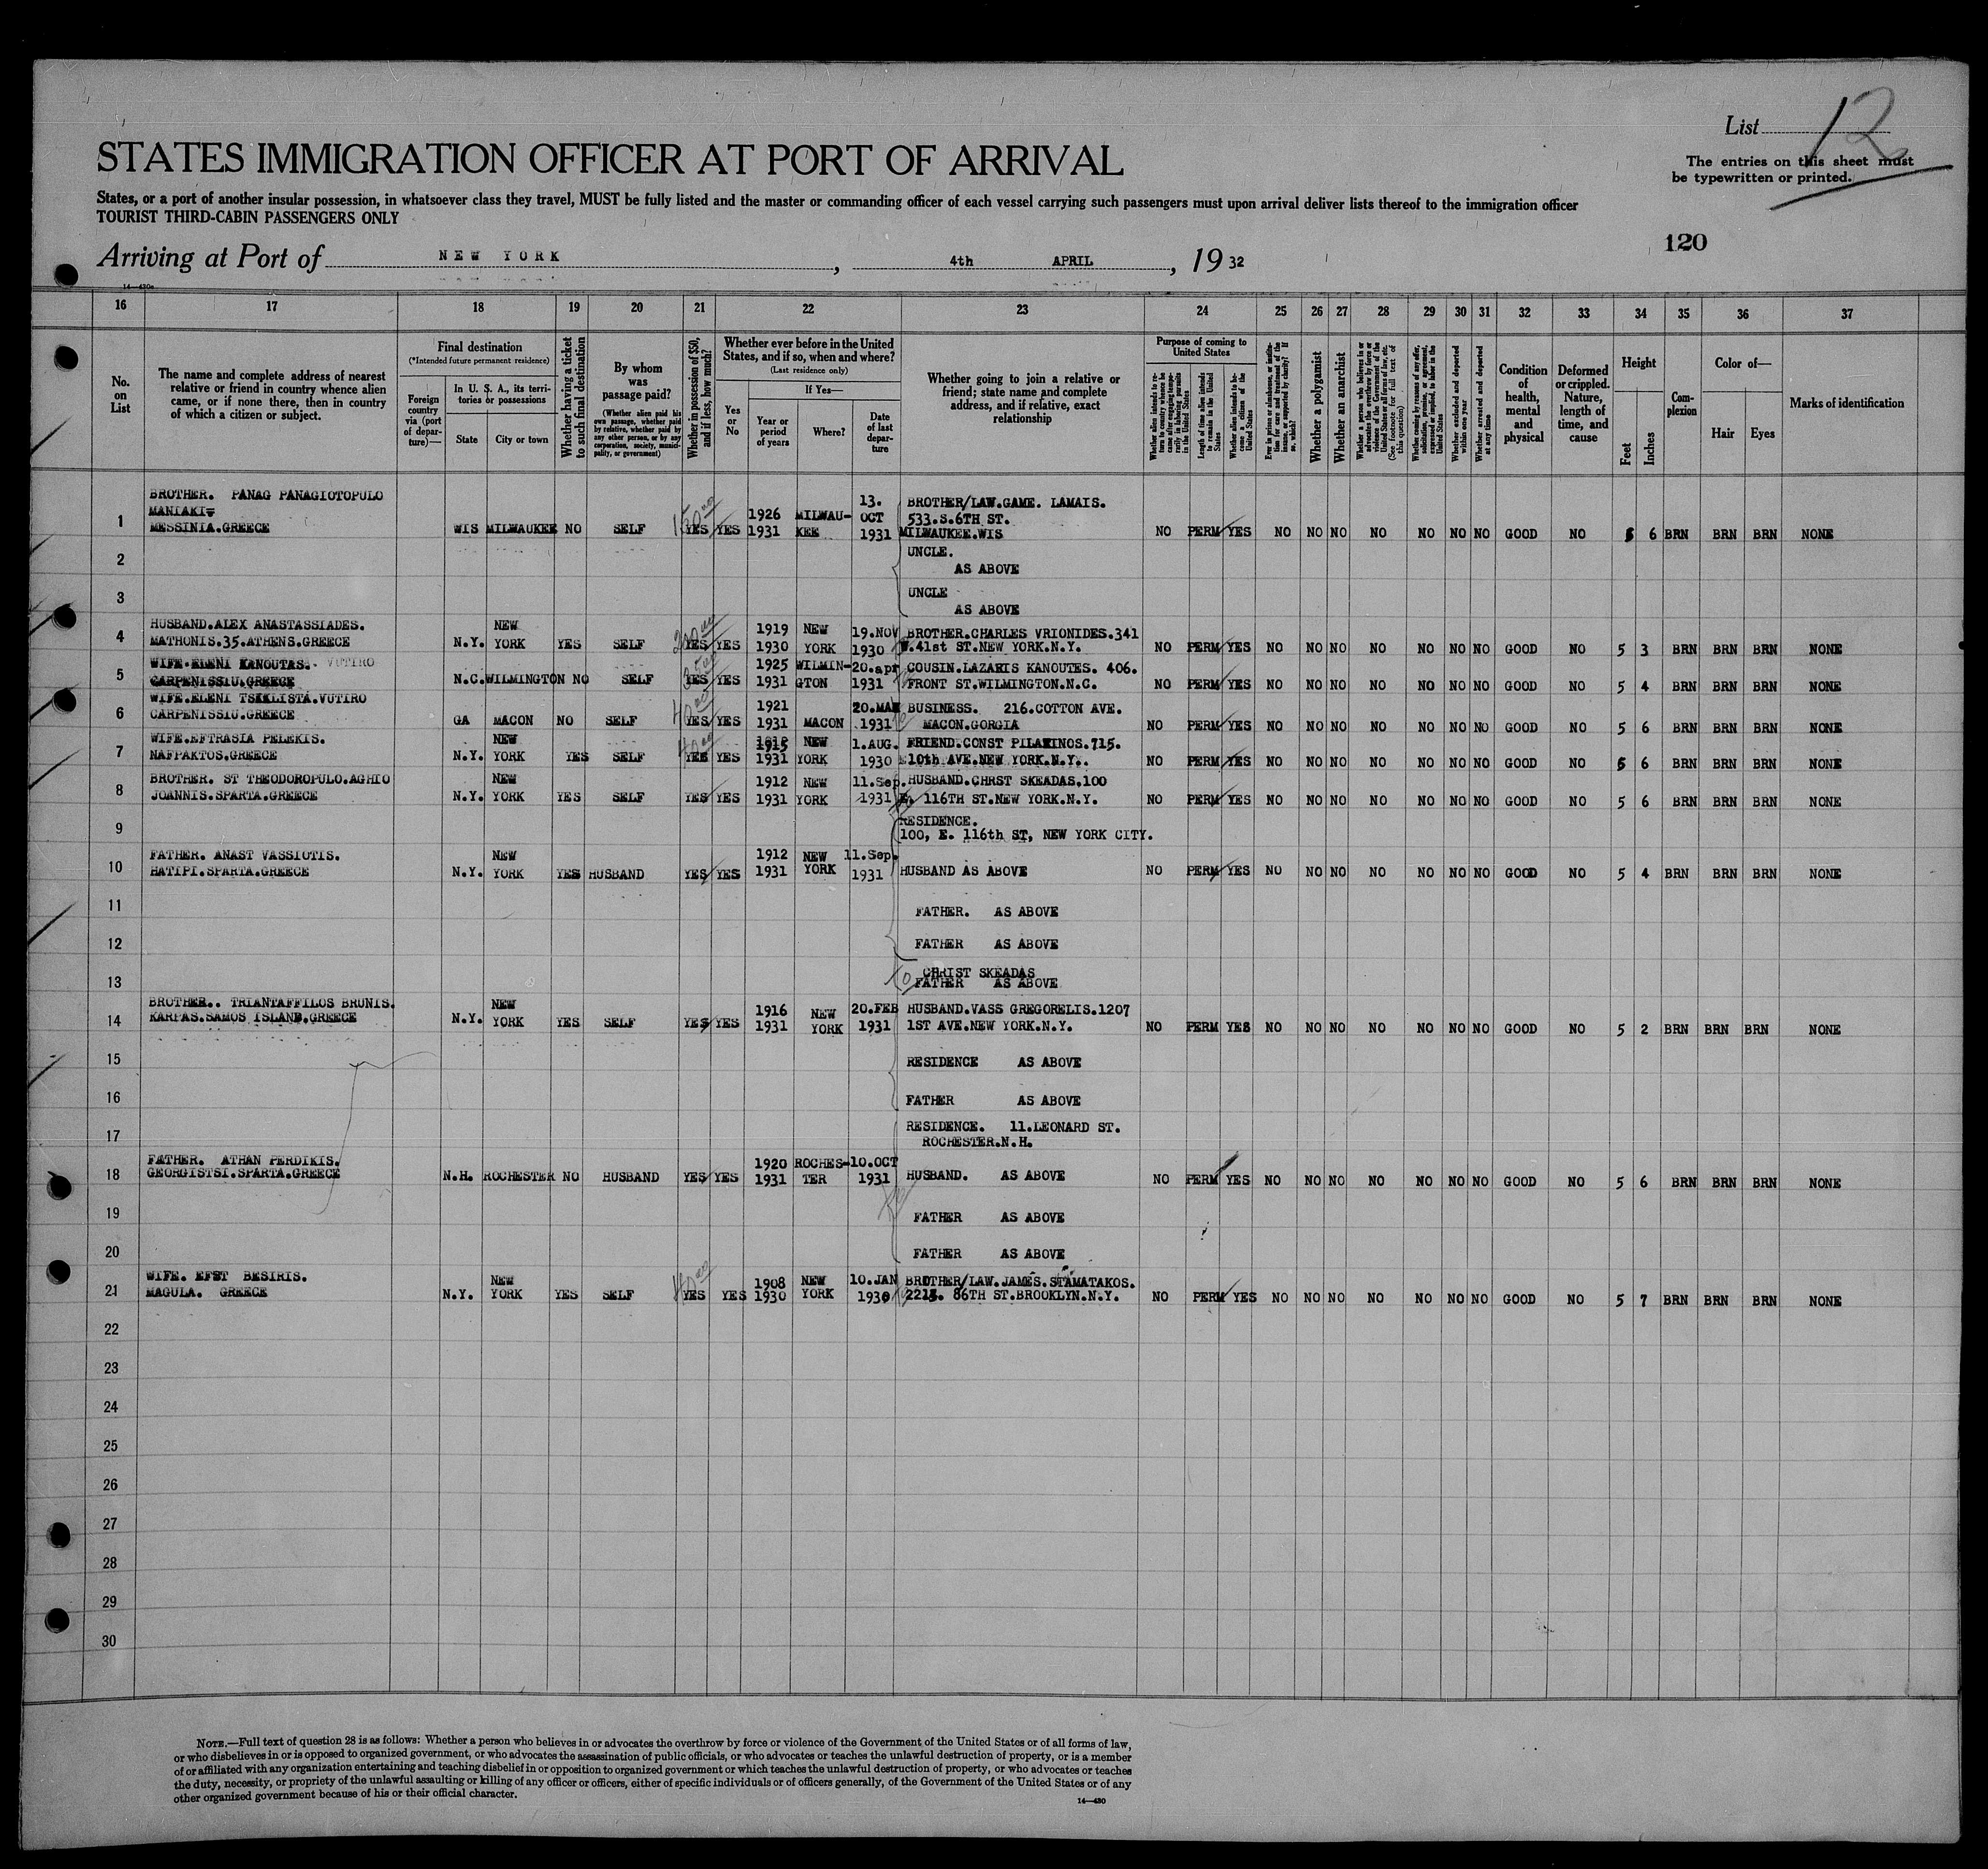 List 12
STATES IMMIGRATION OFFICER AT PORT OF ARRIVAL
The entries on this sheet must
be typewritten or printed.
States, or a port of another insular possession, in whatsoever class they travel, MUST be fully listed and the master or commanding officer of each vessel carrying such passengers must upon arrival deliver lists thereof to the immigration officer
TOURIST THIRD-CABIN PASSENGERS ONLY
120
Arriving at Port of NEW YORK, 4th APRIL, 19 32
16 17 18 19 20 21 22 23 24 25 26 27 28 29 30 31 32 33 34 35 36 37
No. on List
The name and complete address of nearest relative or friend in country whence alien came, or if none there, then in country of which a citizen or subject.
Final destination
(*Intended future permanent residence)
Foreign country via (port of departure)—
In U. S. A., its territories or possessions
State
City or town
Whether having a ticket to such final destination
By whom was passage paid?
(Whether alien paid his own passage, whether paid by relative, whether paid by any other person, or by any corporation, society, municipality, or government)
Whether in possession of $50, and if less, how much?
Whether ever before in the United States, and if so, when and where?
(Last residence only)
Yes or No
If Yes—
Year or period of years
Where?
Date of last departure
Whether going to join a relative or friend; state name and complete address, and if relative, exact relationship
Purpose of coming to United States
Whether alien intends to return to country whence he came after engaging temporarily in laboring pursuits in the United States
Length of time alien intends to remain in the United States
Whether alien intends to become a citizen of the United States
Ever in prison or almshouse, or institution for care and treatment of the insane, or supported by charity? If so, which?
Whether a polygamist
Whether an anarchist
Whether a person who believes in or advocates the overthrow by force or violence of the Government of the United States or all forms of law, etc. (See footnote for full text of this question)
Whether coming by reason of any offer, solicitation, promise, or agreement, expressed or implied, to labor in the United States
Whether excluded and deported within one year
Whether arrested and deported at any time
Condition of health, mental and physical
Deformed or crippled. Nature, length of time, and cause
Height
Feet
Inches
Complexion
Color of—
Hair
Eyes
Marks of identification
BROTHER. PANAG PANAGIOTOPULO 13. BROTHER/LAW.GAME. LAMAIS.
MANIAKI- 1926 MILWAU- OCT 533.S.6TH ST.
1 MESSINIA.GREECE WIS MILWAUKEE NO SELF YES YES 1931 KEE 1931 MILWAUKEE.WIS NO PERM YES NO NO NO NO NO NO NO GOOD NO 5 6 BRN BRN BRN NONE
2 UNCLE.
AS ABOVE
3 UNCLE
AS ABOVE
HUSBAND.ALEX ANASTASSIADES. NEW 1919 NEW 19.NOV BROTHER.CHARLES VRIONIDES.341
4 MATHONIS.35.ATHENS.GREECE N.Y. YORK YES SELF YES YES 1930 YORK 1930 W.41st ST.NEW YORK.N.Y. NO PERM YES NO NO NO NO NO NO NO GOOD NO 5 3 BRN BRN BRN NONE
WIFE.ELENI KANOUTAS. VUTIRO 1925 WILMIN- 20.apr COUSIN.LAZARIS KANOUTES. 406.
5 CARPENISSIU.GREECE N.C. WILMINGTON NO SELF YES YES 1931 GTON 1931 FRONT ST.WILMINGTON.N.C. NO PERM YES NO NO NO NO NO NO NO GOOD NO 5 4 BRN BRN BRN NONE
WIFE.ELENI TSEKLISTA.VUTIRO 1921 20.MAR BUSINESS. 216.COTTON AVE.
6 CARPENISSIU.GREECE GA MACON NO SELF YES YES 1931 MACON 1931 MACON.GORGIA NO PERM YES NO NO NO NO NO NO NO GOOD NO 5 6 BRN BRN BRN NONE
WIFE.EFTRASIA PELEKIS. NEW 1915 NEW 1.AUG. FRIEND.CONST PILAKINOS.715.
7 NAFPAKTOS.GREECE N.Y. YORK YES SELF YES YES 1931 YORK 1930 10th AVE.NEW YORK.N.Y. NO PERM YES NO NO NO NO NO NO NO GOOD NO 5 6 BRN BRN BRN NONE
BROTHER. ST THEODOROPULO.AGHIO NEW 1912 NEW 11.Sep. HUSBAND.CHRST SKEADAS.100
8 JOANNIS.SPARTA.GREECE N.Y. YORK YES SELF YES YES 1931 YORK 1931 E. 116TH ST.NEW YORK.N.Y. NO PERM YES NO NO NO NO NO NO NO GOOD NO 5 6 BRN BRN BRN NONE
9 RESIDENCE.
100, E. 116th ST, NEW YORK CITY.
FATHER. ANAST VASSIOTIS. NEW 1912 NEW 11.Sep.
10 HATIPI.SPARTA.GREECE N.Y. YORK YES HUSBAND YES YES 1931 YORK 1931 HUSBAND AS ABOVE NO PERM YES NO NO NO NO NO NO NO GOOD NO 5 4 BRN BRN BRN NONE
11 FATHER. AS ABOVE
12 FATHER AS ABOVE
CHRIST SKEADAS
13 FATHER AS ABOVE
BROTHER.. TRIANTAFFILOS BRUNIS. NEW 1916 NEW 20.FEB HUSBAND.VASS GREGORELIS.1207
14 KARPAS.SAMOS ISLAND.GREECE N.Y. YORK YES SELF YES YES 1931 YORK 1931 1ST AVE.NEW YORK.N.Y. NO PERM YES NO NO NO NO NO NO NO GOOD NO 5 2 BRN BRN BRN NONE
15 RESIDENCE AS ABOVE
16 FATHER AS ABOVE
17 RESIDENCE. 11.LEONARD ST.
ROCHESTER.N.H.
FATHER. ATHAN PERDIKIS. 1920 ROCHES- 10.OCT
18 GEORGISTSI.SPARTA.GREECE N.H. ROCHESTER NO HUSBAND YES YES 1931 TER 1931 HUSBAND. AS ABOVE NO PERM YES NO NO NO NO NO NO NO GOOD NO 5 6 BRN BRN BRN NONE
19 FATHER AS ABOVE
20 FATHER AS ABOVE
WIFE. EFST BESIRIS. NEW 1908 NEW 10.JAN BROTHER/LAW.JAMES.STAMATAKOS.
21 MAGULA. GREECE N.Y. YORK YES SELF YES YES 1930 YORK 1930 2215. 86TH ST.BROOKLYN.N.Y. NO PERM YES NO NO NO NO NO NO NO GOOD NO 5 7 BRN BRN BRN NONE
22
23
24
25
26
27
28
29
30
NOTE.—Full text of question 28 is as follows: Whether a person who believes in or advocates the overthrow by force or violence of the Government of the United States or of all forms of law,
or who disbelieves in or is opposed to organized government, or who advocates the assassination of public officials, or who advocates or teaches the unlawful destruction of property, or is a member
of or affiliated with any organization entertaining and teaching disbelief in or opposition to organized government or which teaches the unlawful destruction of property, or who advocates or teaches
the duty, necessity, or propriety of the unlawful assaulting or killing of any officer or officers, either of specific individuals or of officers generally, of the Government of the United States or of any
other organized government because of his or their official character.
14—430